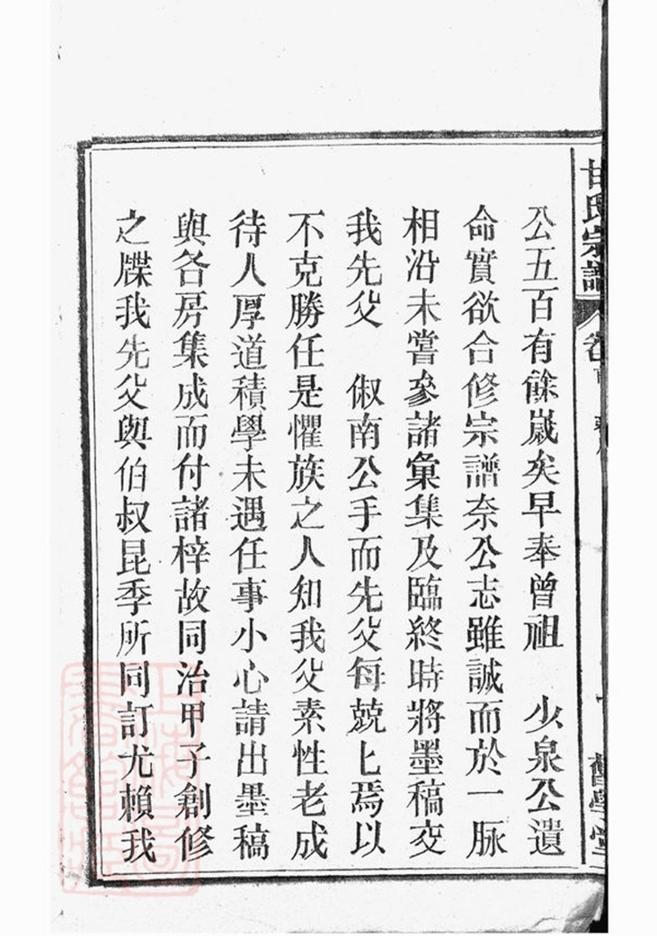 甘氏宗譜 卷首
舊學堂
公五百有餘嵗矣早奉曾祖 少泉公遺
命實欲合修宗譜奈公志雖誠而於一脉
相沿未嘗參諸彙集及臨終時將墨稿交
我先父 俶南公手而先父每兢匕焉以
不克勝任是懼族之人知我父素性老成
待人厚道積學未遇任事小心請出墨稿
與各房集成而付諸梓故同治甲子創修
之牒我先父與伯叔昆季所同訂尤賴我